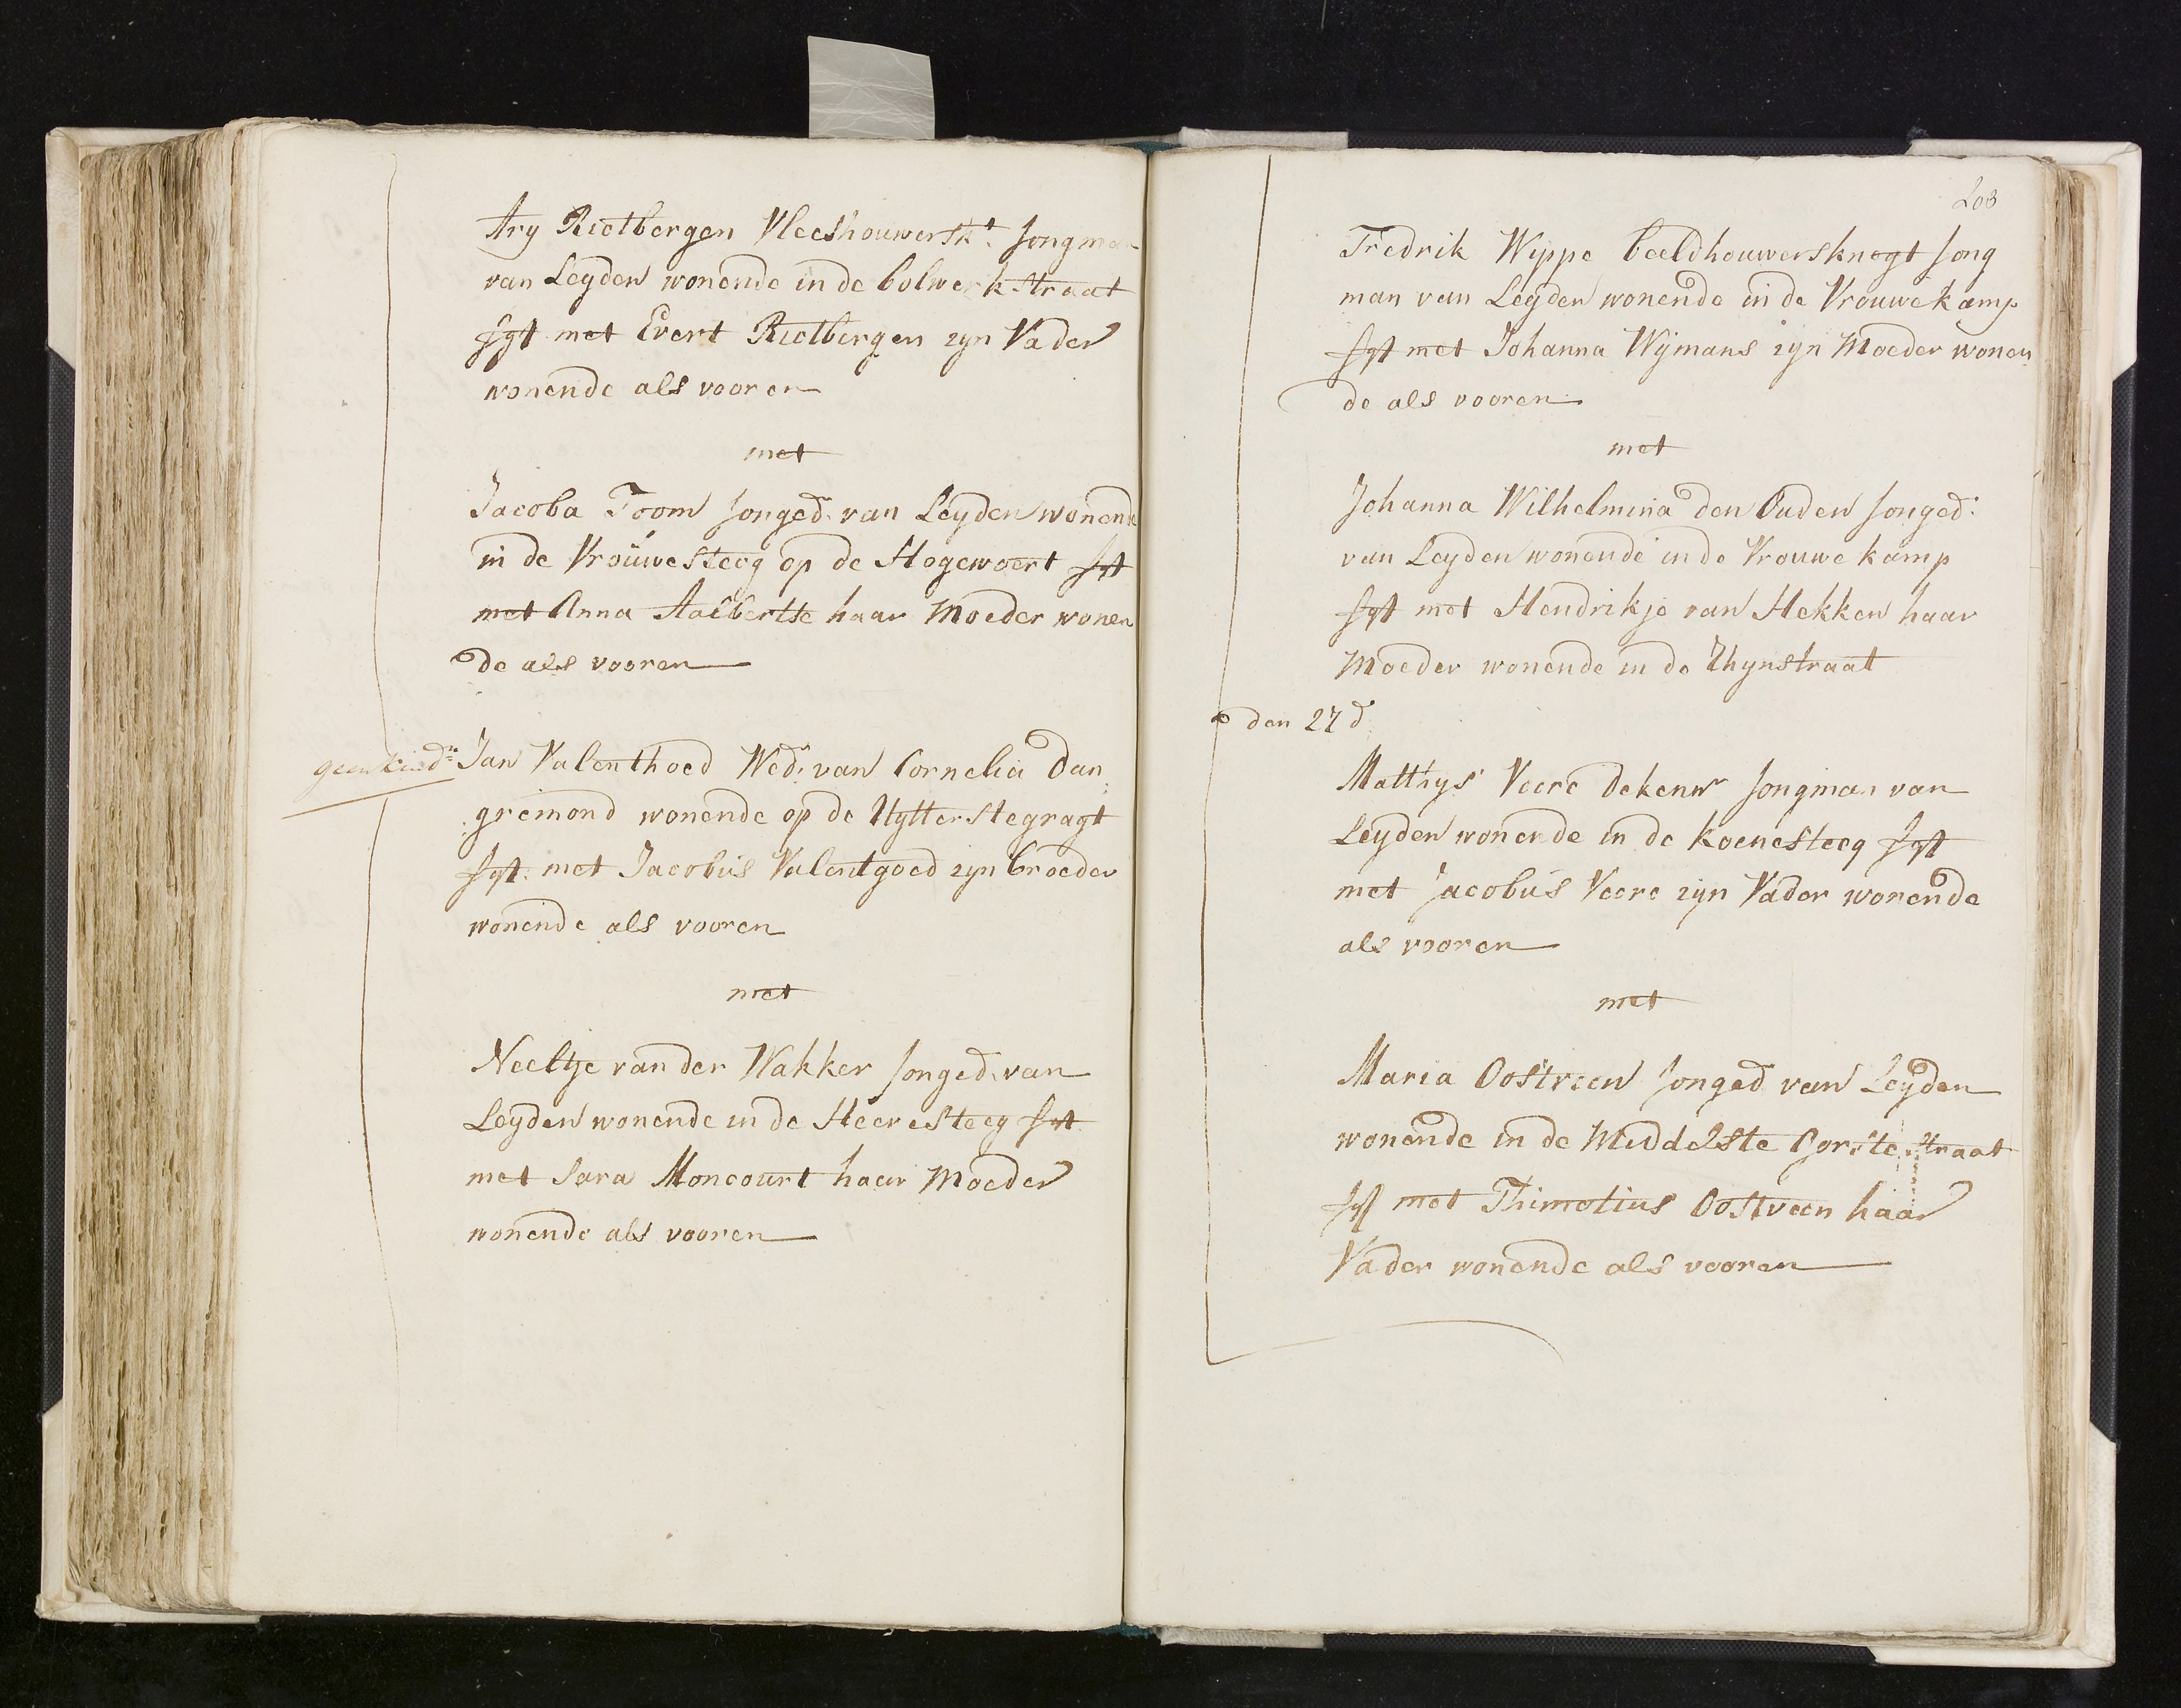 Ary Rietbergen Vleeshouwerskt. Jongman
van Leyden wonende in de bolwerkstraat
Sgt met Evert Rietbergen zyn Vader
wonende als vooren
met
Jacoba Toom Jonged. van Leyden wonende
in de Vrouwesteeg op de Hogewoert Sgt
met Anna Aalbertse haar Moeder wonen
de als vooren
geen kindn
Jan Valenthoed Wedr. van Cornelia Dan
gremond wonende op de Uytterstegragt
Sgt. met Jacobus Valentgoed zyn broeder
wonende als vooren
met
Neeltje van der Wakker Jonged. van
Leyden wonende in de Heeresteeg Sgt
met Sara Moncourt haar Moeder
wonende als vooren
208
Fredrik Wippe beeldhouwersknegt Jong
man van Leyden wonende in de Vrouwekamp
Sgt met Johanna Wijmans zyn Moeder wonen
de als vooren
met
Johanna Wilhelmina den Ouden Jonged:
van Leyden wonende in de Vrouwekamp
Sgt met Hendrikje van Hekken haar
Moeder wonende in de Rhynstraat
den 27 d
Matthys Veere dekenwr Jongman van
Leyden wonende in de Koenesteeg Sgt
met Jacobus Veere zyn Vader wonende
als vooren
met
Maria Oostveen Jonged van Leyden
wonende in de Middelste Gorstestraat
Sgt met Thimotius Oostveen haar
Vader wonende als vooren